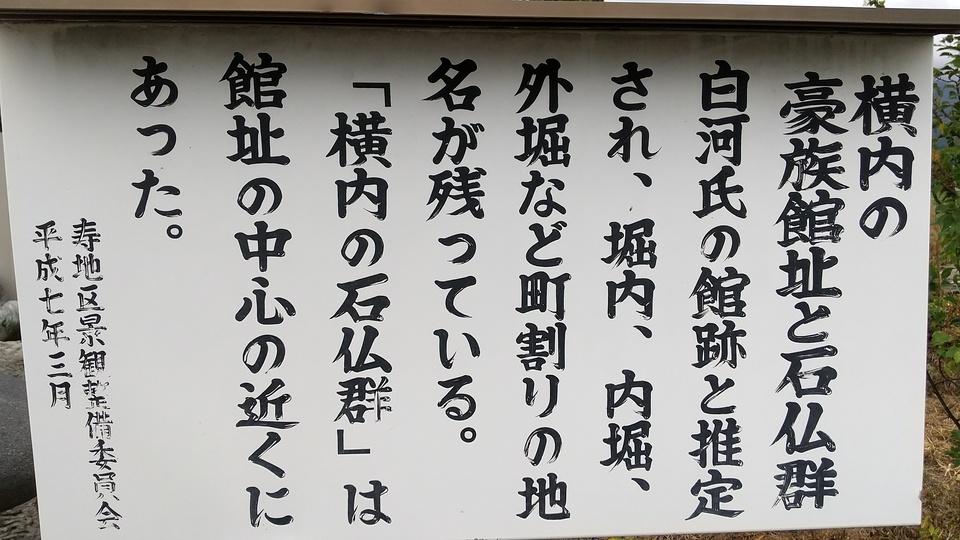 横内の
豪族館址と石仏群
白河氏の館跡と推定
され、堀内、内堀、
外堀など町割りの地
名が残っている。
「横内の石仏群」は
館址の中心の近くに
あった。
寿地区景観整備委員会
平成七年三月